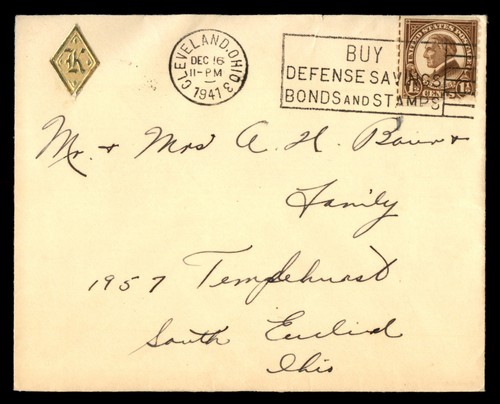 K
CLEVELAND, OHIO 3
DEC 16
11-PM
1941
BUY
DEFENSE SAVINGS
BONDS AND STAMPS
UNITED STATES POSTAGE
Mr. + Mrs A. H. Bauer +
Family
1957 Templehurst
South Euclid
Ohio